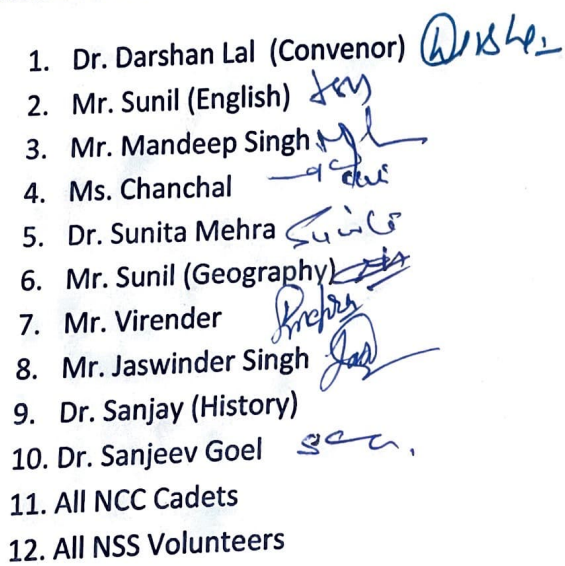 1. Dr. Darshan Lal (Convenor)
2. Mr. Sunil (English)
3. Mr. Mandeep Singh
4. Ms. Chanchal
5. Dr. Sunita Mehra
6. Mr. Sunil (Geography)
7. Mr. Virender
8. Mr. Jaswinder Singh
9. Dr. Sanjay (History)
10. Dr. Sanjeev Goel
11. All NCC Cadets
12. All NSS Volunteers